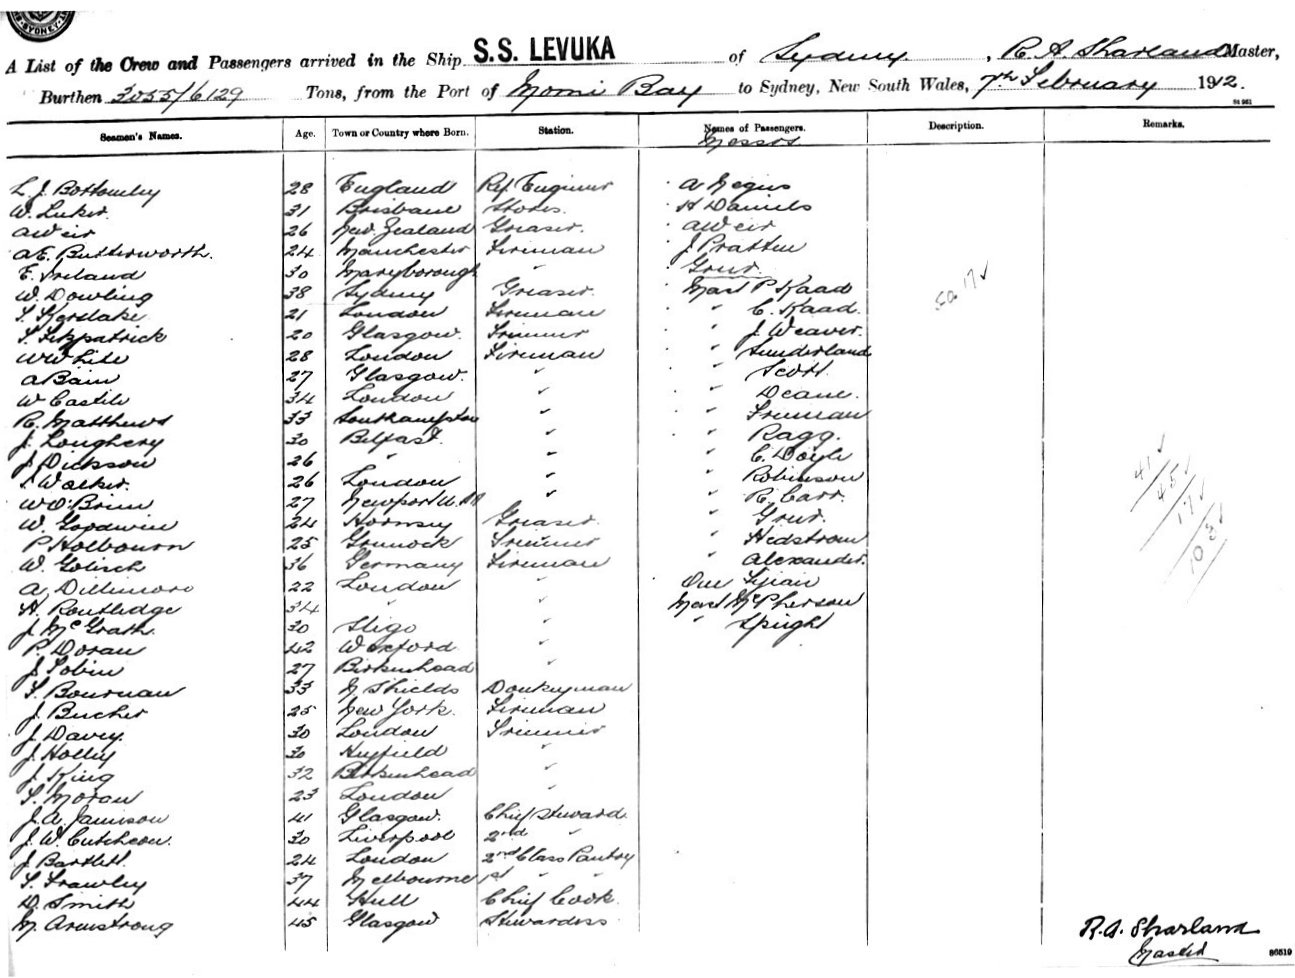 SYDNEY
A List of the Crew and Passengers arrived in the Ship S.S. LEVUKA of Sydney, R. A. Sharland Master,
Burthen 3055/6129 Tons, from the Port of Momi Bay to Sydney, New South Wales, 7th February 1912.
S4 961
Seamen's Names. Age. Town or Country where Born. Station. Names of Passengers. Description. Remarks.
Messrs
L. J. Bottomley 28 England Ref. Engineer A Negus
W. Luker. 31 Brisbane Stores. H Daniels
A Weir 26 New Zealand Greaser. A Weir
A E. Butterworth. 24 Manchester Fireman J Pratten
E. Ireland 30 Maryborough " Greer.
W. Dowling 38 Sydney Greaser. Mast P Kaad
T. Kerslake. 21 London Fireman " C. Kaad.
T. Fitzpatrick 20 Glasgow. Trimmer " J Weaver.
W White 28 London Fireman " Sunderland
A Bain 27 Glasgow. " " Scott.
W Castle 34 London " " Deane.
R. Matthews 33 Southampton " " Freeman
J. Loughery 30 Belfast. " " Ragg.
J Dickson 26 " " " C. Doyle
T. Walker. 26 London " " Robinson
W O'Brien 27 Newport " " R. Carr.
W. Goodwin 24 Hornsey Greaser. " Greer.
P Holbourn 25 Greenock Trimmer " Hedstrom
W. Golisch 36 Germany Fireman " Alexander.
A. Dillimore 22 London " One Fijian
H. Routledge 34 " " Mast McPherson
J. McGrath. 30 Sligo " " Speight
P. Doran 42 Wexford "
J Tobin 27 Birkenhead "
T. Bournan 33 N Shields Donkeyman
J. Bucher 25 New York. Fireman
J Davey. 30 London Trimmer
J Holley 30 Heyfield "
J. King 32 Birkenhead "
T. Moran 23 London "
J. A. Jamieson 41 Glasgow. Chief Steward.
J. W. Cutcheon. 30 Liverpool 2nd "
J Bartlett. 24 London 2nd Class Pantry
T. Frawley 37 Melbourne 1st " "
D. Smith 44 Hull Chief Cook.
M. Armstrong 45 Glasgow Stewardess
17
41
45
17
103
R. A. Sharland
Master
86519